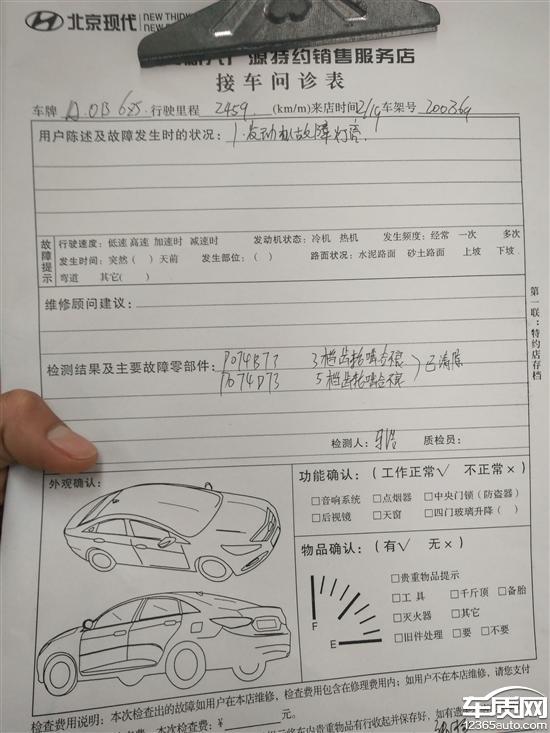 北京现代 NEW THINK
NEW
源特约销售服务店
接车问诊表
车牌 A.0B685 行驶里程 2459 (km/m)来店时间2/19 车架号 200369
用户陈述及故障发生时的状况: 1.发动机故障灯亮
故障提示
行驶速度: 低速 高速 加速时 减速时 发动机状态: 冷机 热机 发生频度: 经常 一次 多次
发生时间: 突然( )天前 发生部位: ( ) 路面状况: 水泥路面 砂土路面 上坡 下坡
弯道 其它( )
维修顾问建议:
检测结果及主要故障零部件: P074B77 3档齿轮啮合不良
P074D73 5档齿轮啮合不良 ) 已清除
检测人: 质检员:
第一联:特约店存档
外观确认:
功能确认: (工作正常√ 不正常×)
□音响系统 □点烟器 □中央门锁(防盗器)
□后视镜 □天窗 □四门玻璃升降( )
物品确认: (有√ 无×)
F
E
□贵重物品提示
□工具 □千斤顶 □备胎
□灭火器 □其它
□旧件处理 □要 □不要
检查费用说明: 本次检查出的故障如用户在本店维修,检查费用包含在修理费用内;如用户不在本店维修,请您支付
检查费用,本次检查费: ¥ 元。
车内贵重物品有行收起并保存好,如有遗
车质网
12365auto.com